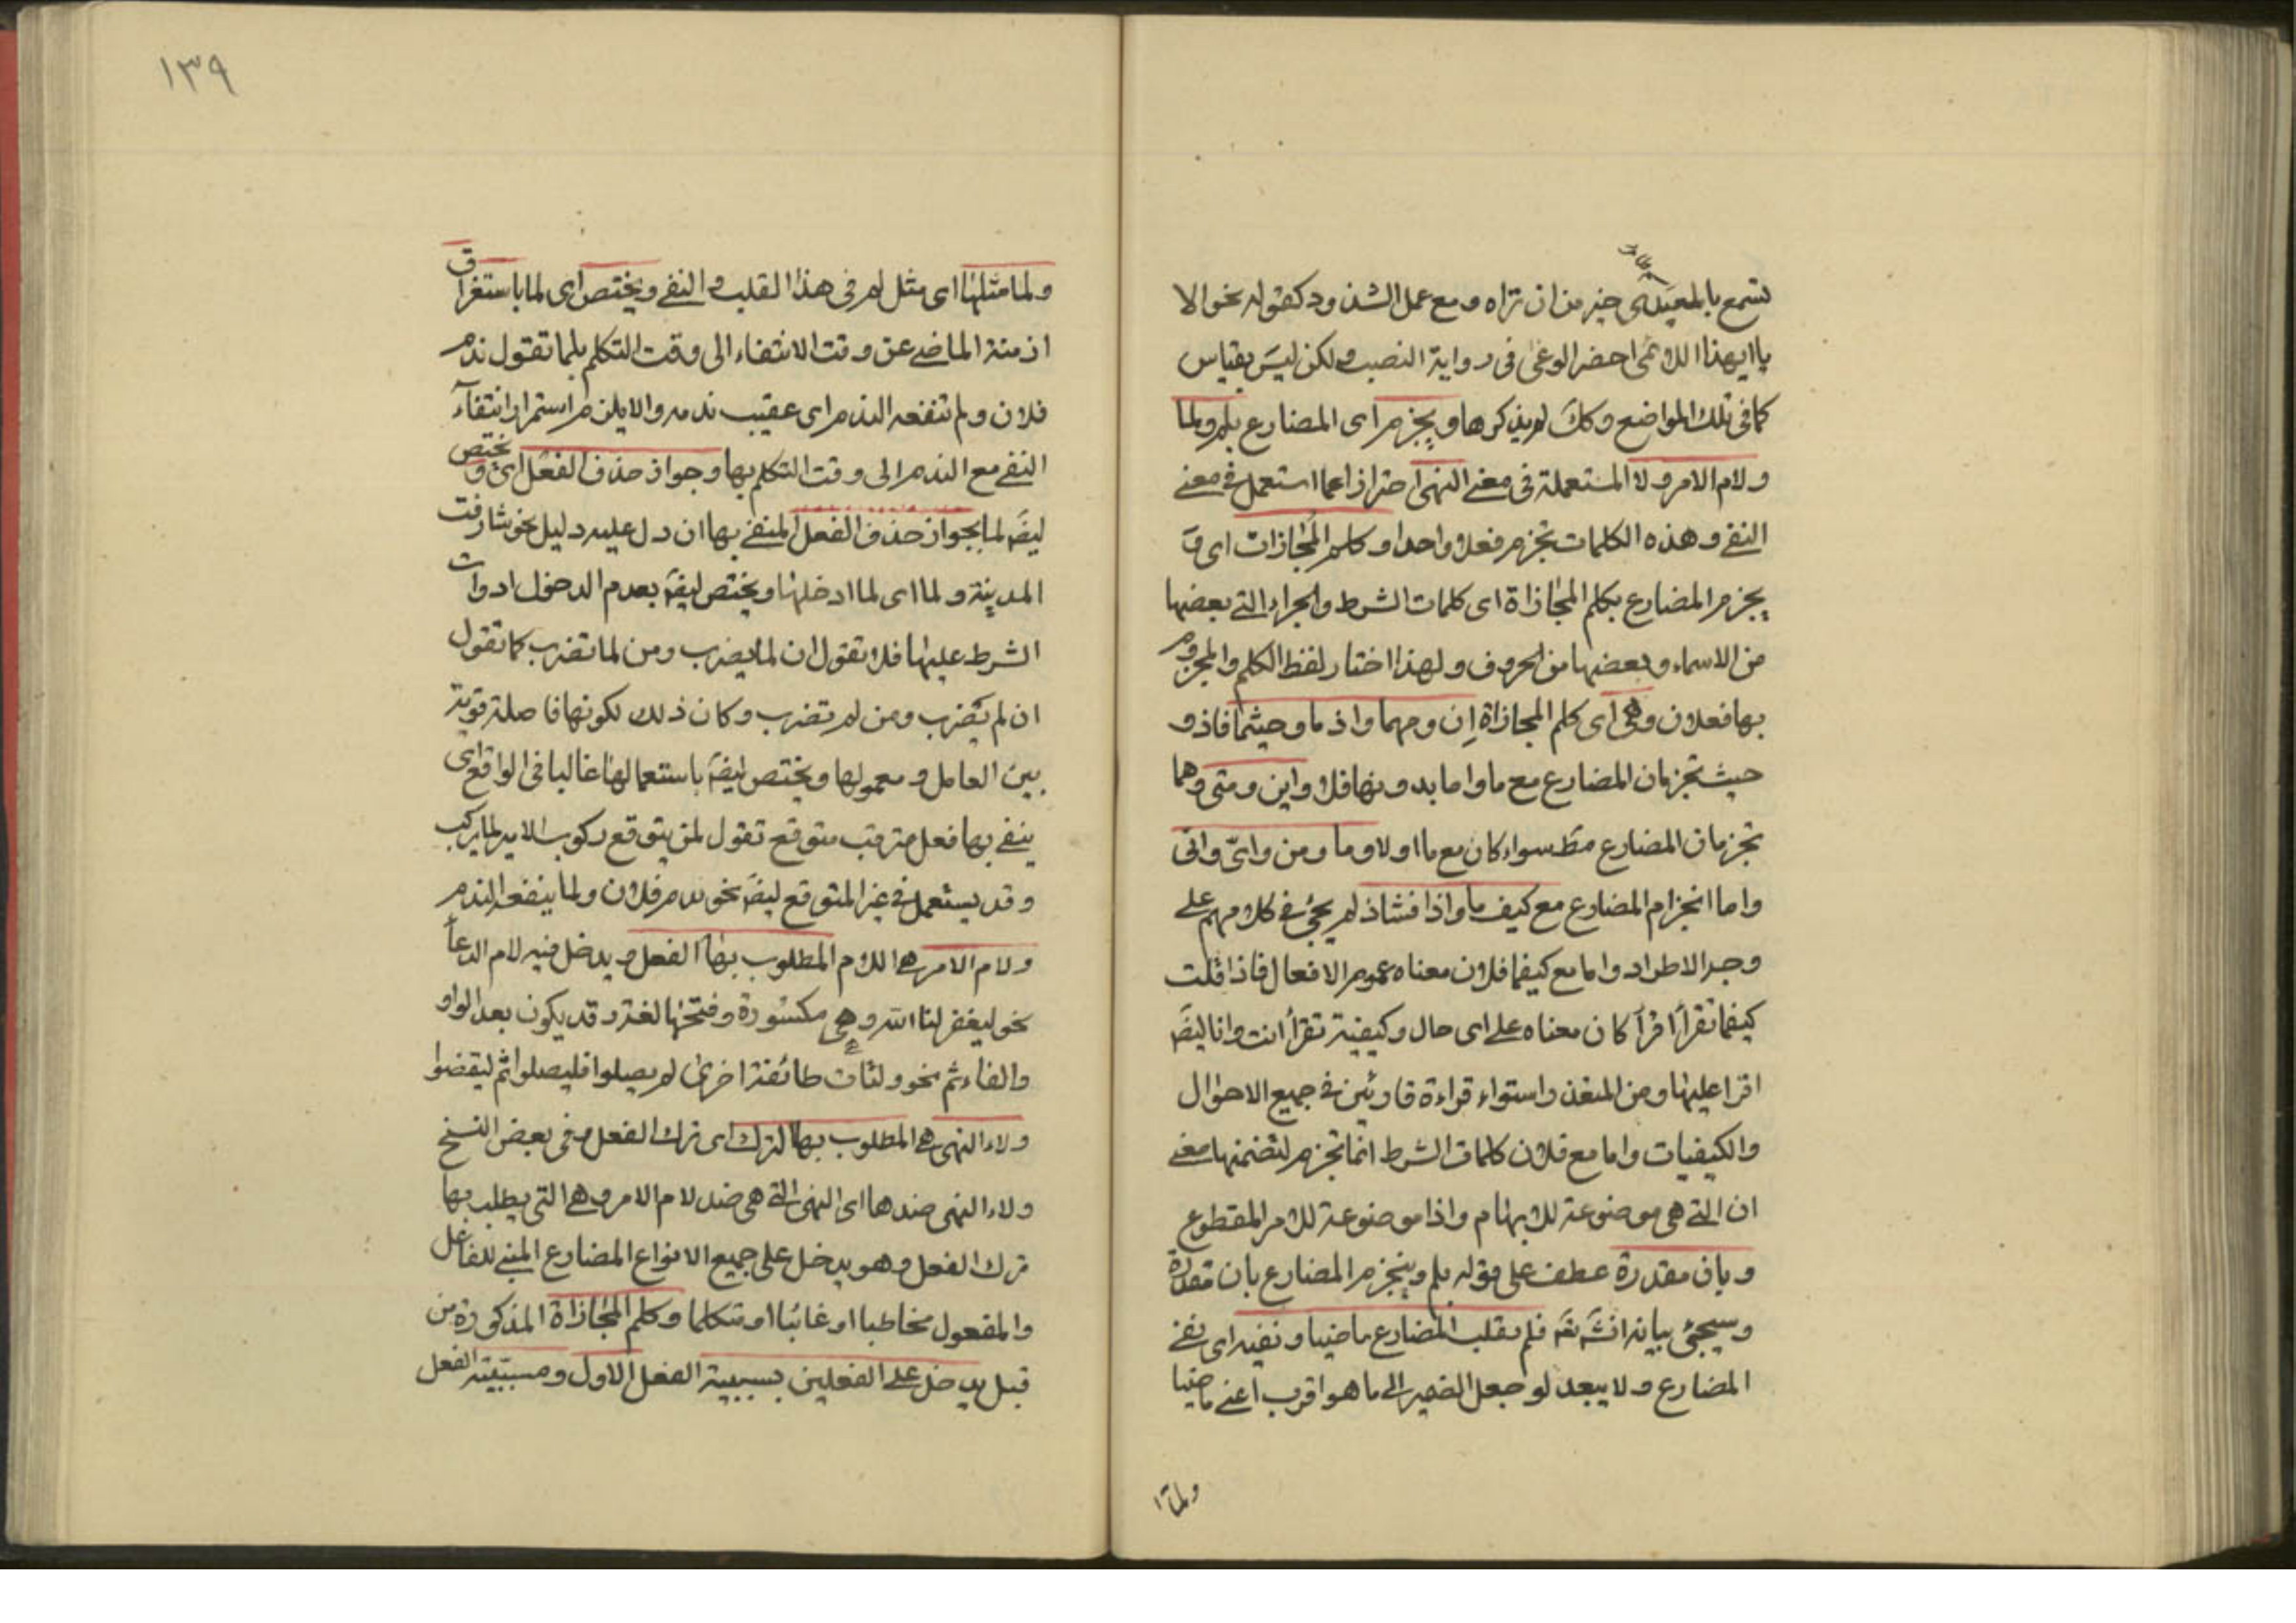 تسمع بالمعيدى خير من ان تراه ومع عمل الشذوذ كقوله نحو الا
يا ايهذا اللائمى احضر الوغى فى رواية النصب ولكن ليس بقياس
كما فى تلك المواضع وكك لم يذكرها ويجزم اى المضارع بلم ولما
ولام الامر ولا المستعملة فى معنى النهى احترازا عما استعمل فى معنى
النفى وهذه الكلمات تجزم فعلا واحدا وكلم المجازات اى
يجزم المضارع بكلم المجازاة اى كلمات الشرط والجزاء التى بعضها
من الاسماء وبعضها من الحروف ولهذا اختار لفظ الكلم والمجزوم
بها فعلان وهى اى كلم المجازاة اِن ومهما واذ ما وحيثما فاذ و
حيث تجزمان المضارع مع ما واما بدونها فلا واين ومتى وهما
تجزمان المضارع مط سواء كان مع ما اولا وما ومن واىّ وانى
واما انجزام المضارع مع كيف ما واذا فشاذ لم يجئ فى كلامهم على
وجه الاطراد واما مع كيفما فلان معناه عموم الافعال فاذا قلت
كيفما تقرأ اقرأ كان معناه على اى حال وكيفية تقرأ انت وانا ايضَ
اقرا عليها ومن المتعذر استواء قراءة قارئين فى جميع الاحوال
والكيفيات واما مع فلان كلمات الشرط انما تجزم لتضمنها معنى
ان التى هى موضوعة للابهام واذا موضوعة للامر المقطوع
وبان مقدرة عطف على قوله بلم وينجزم المضارع بان مقدرة
وسيجئ بيانه انشَ تعَ فلم لقلب المضارع ماضيا ونفيه اى نفى
المضارع ولا يبعد لو جعل الضمير الى ما هو اقرب اعنى ماضيا
ولما
١٣٩
ولما مثلها اى مثل لم فى هذا القلب والنفى ويختص اى لما باستغراق
ازمنة الماضى عن وقت الانتفاء الى وقت التكلم بلما تقول ندم
فلان ولم تنفعه الندم اى عقيب ندمه والا يلزم استمرار انتفاء
النفى مع الندم الى وقت التكلم بها وجواز حذف الفعل اى ويختص
ايضَ لما بجواز حذف الفعل المنفى بها ان دل عليه دليل نحو شارفت
المدينة ولما اى لما ادخلها ويختص ايضَ بعدم الدخول ادوات
الشرط عليها فلا تقول ان لما يضرب ومن لما تضرب كما تقول
ان لم يضرب ومن لم تضرب وكان ذلك لكونها فاصلة قوية
بين العامل ومعمولها ويختص ايضَ باستعمالها غالبا فى الواقع اى
ينفى بها فعل مترقب متوقع تقول لمن يتوقع ركوب الامير لما يركب
وقد يستعمل فى غير المتوقع ايضَ نحو ندم فلان ولما ينفعه الندم
ولام الامر هى اللام المطلوب بها الفعل ويدخل فيه لام الدعا
نحو ليغفر لنا الله وهى مكسورة وفتحها لغة وقد يكون بعد الواو
والفاء ثم نحو ولتات طائفة اخرى لم يصلوا فليصلوا ثم ليقضوا
ولاء النهى هى المطلوب بها الترك اى ترك الفعل وفى بعض النسخ
ولاء النهى ضدها اى النهى التى هى ضد لام الامر وهى التى يطلب بها
ترك الفعل وهو يدخل على جميع الانواع المضارع المبنى للفاعل
والمفعول مخاطبا او غائبا او متكلما وكلم المجازاة المذكورة من
قبل يدخل على الفعلين بسببية الفعل الاول ومسببية الفعل